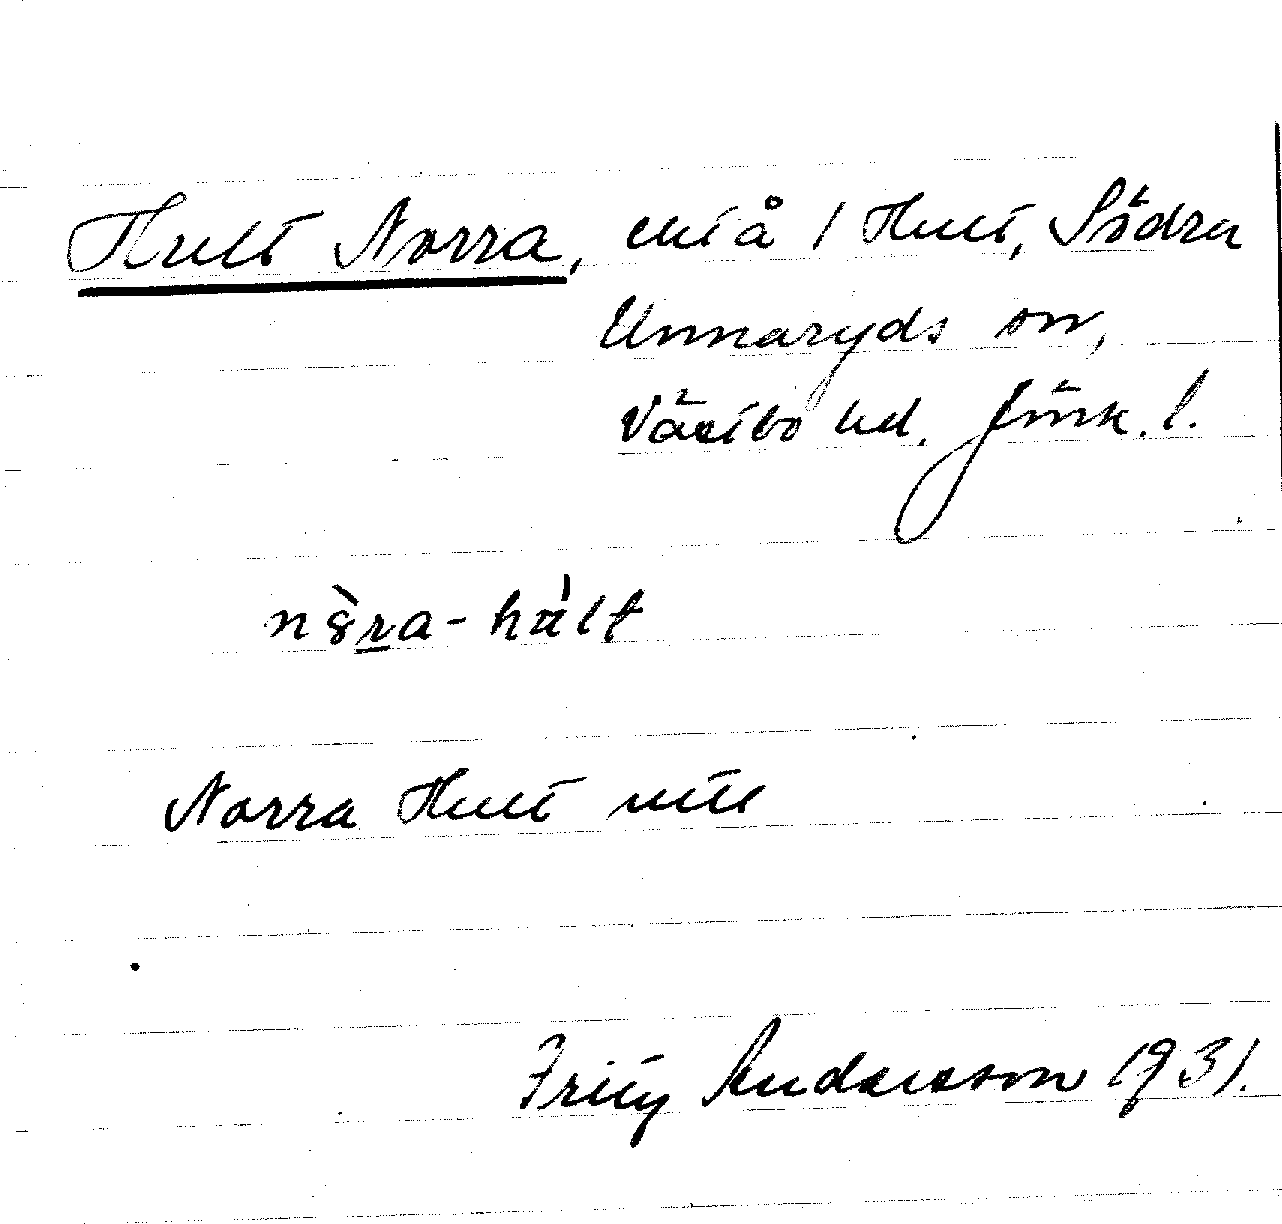 Hult Norra, utå / Hult, Södra
Unnaryds sn,
Västbo hd. Jönk. l.
nɞ̀ra-hált
Norra Hult
Fritz Andersson 1931.